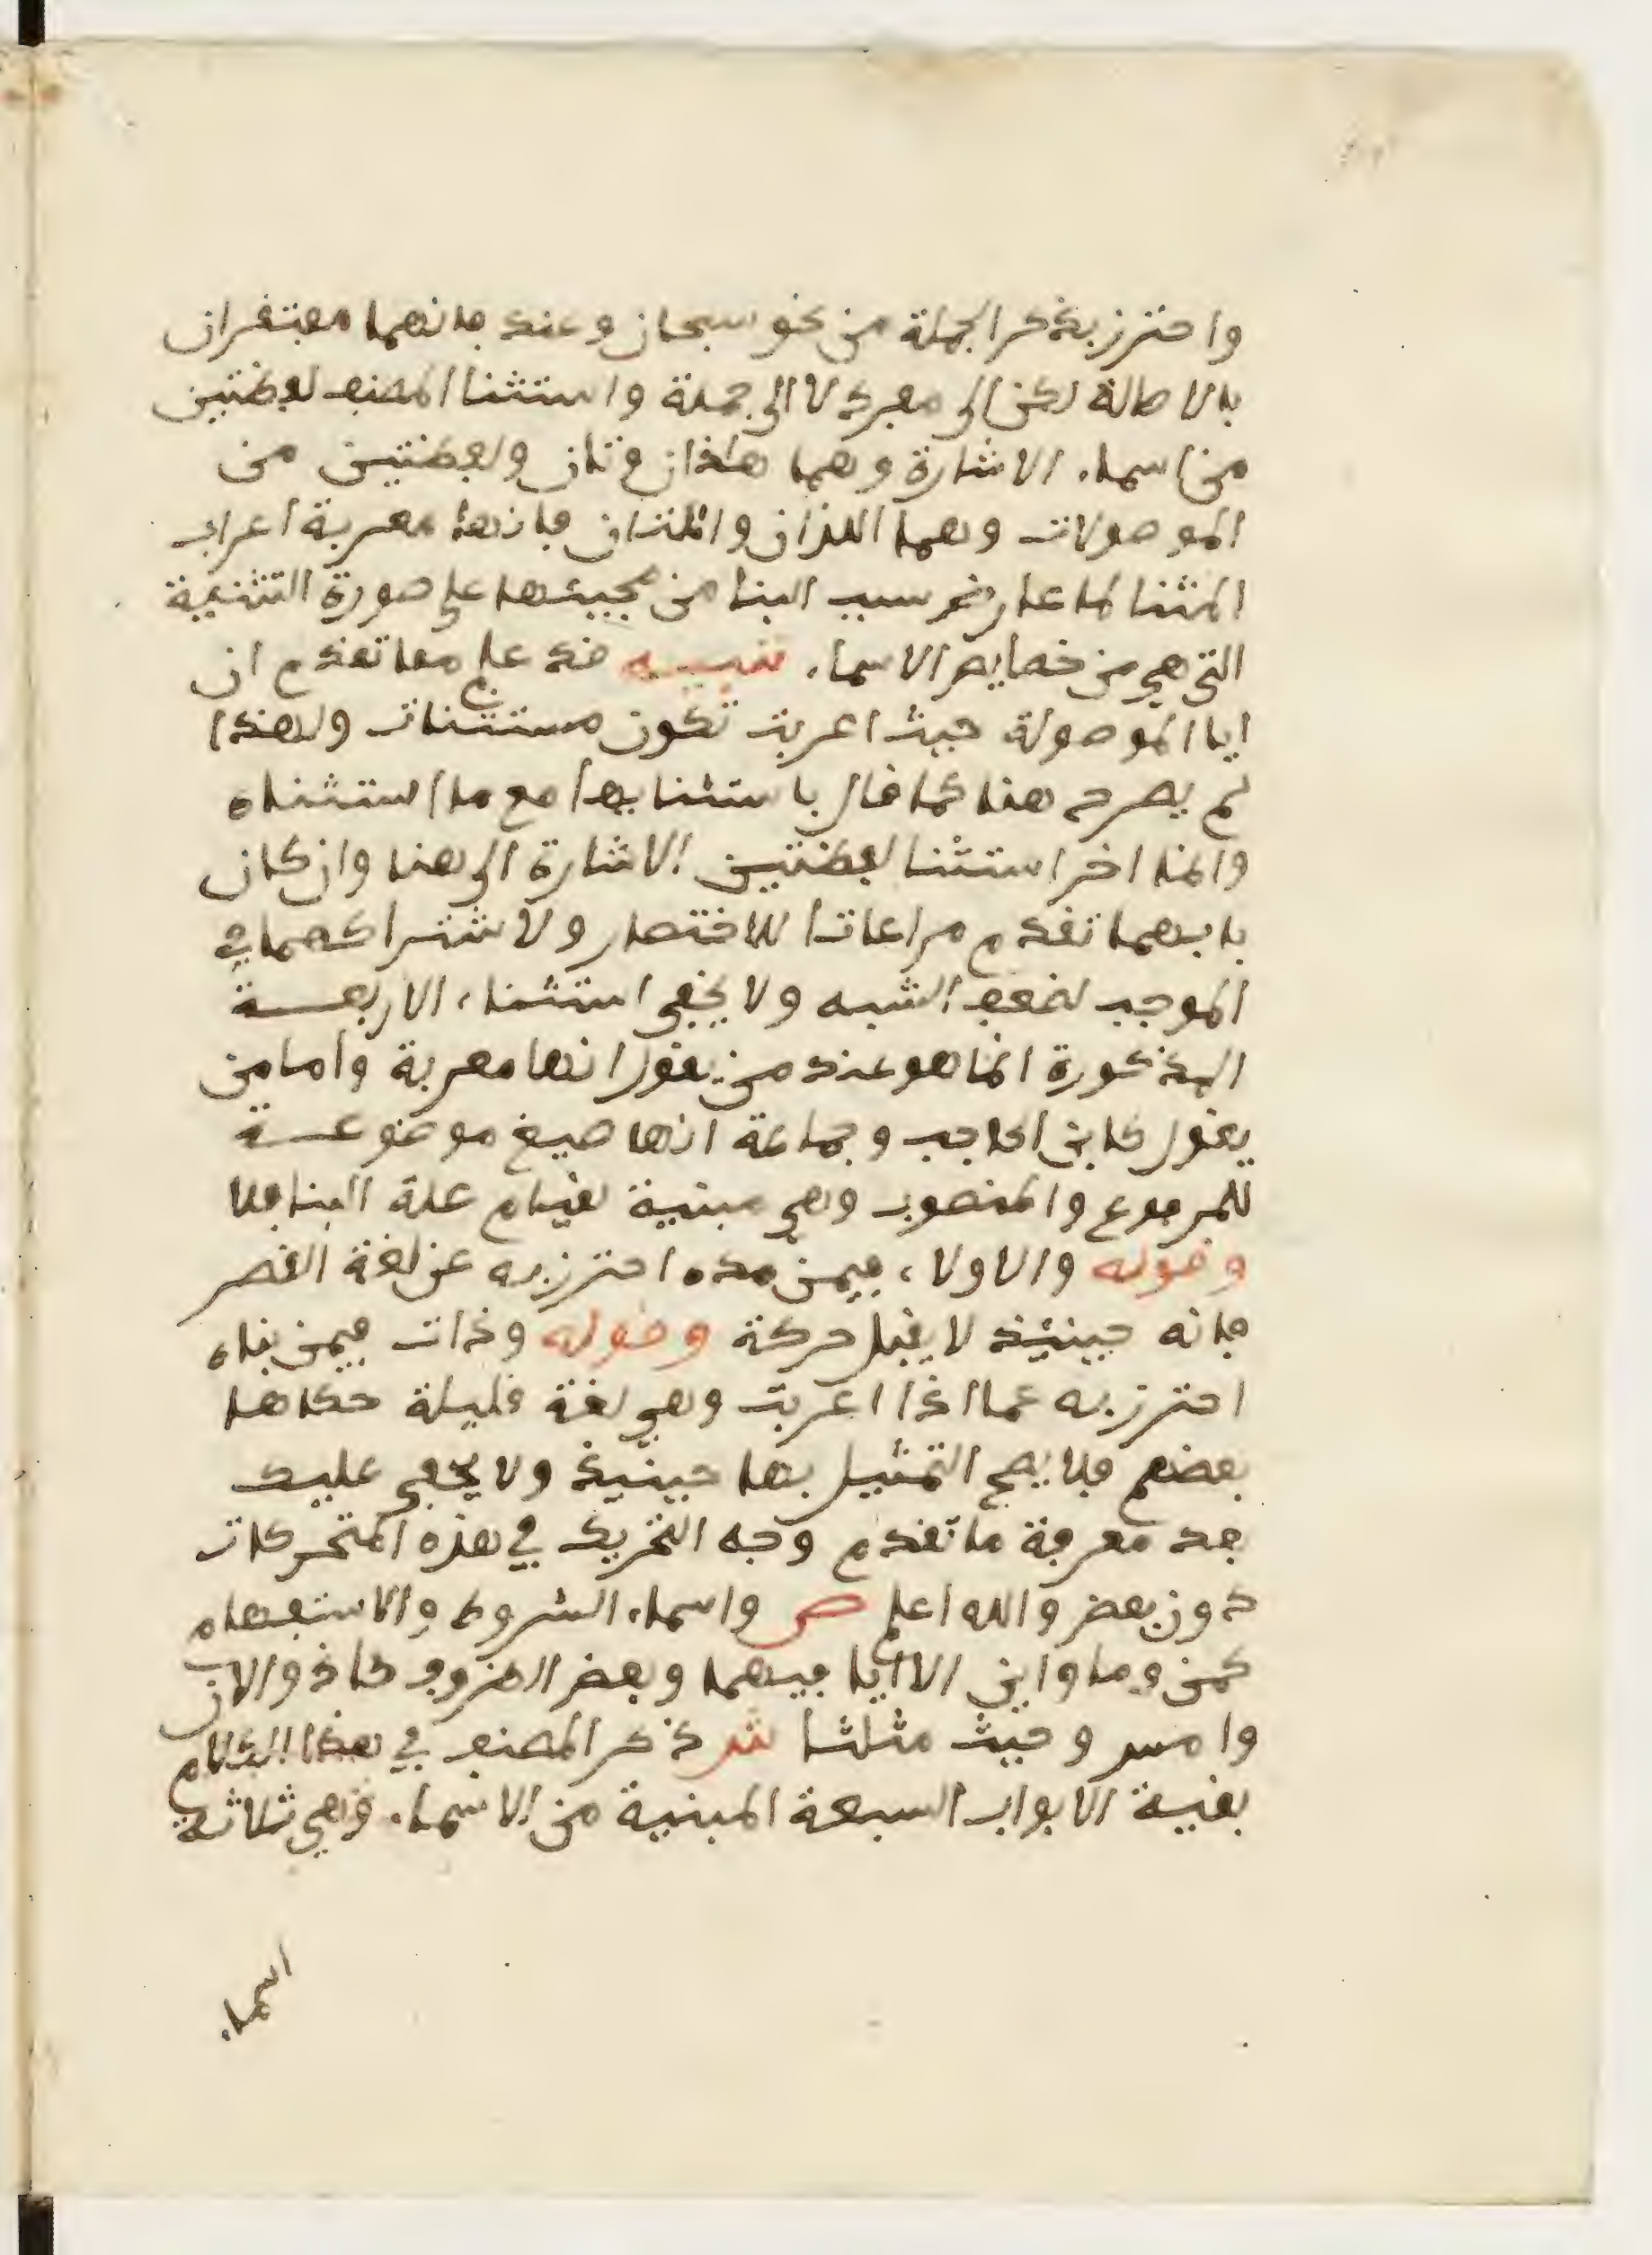 واحترز بذكر الجملة من نحو سبحان وعند فانهما مفتقران
بالاصالة لكن الى مفرد لا الى جملة واستثنا المصنف لفظتين
من اسماء الاشارة وهما هاذان وتان ولفظتين من
الموصولات وهما اللذان واللتان فانها معربة اعراب
المثنا لما عارض سبب البنا من مجيئها على صورة التثنية
التي هي من خصايص الاسماء تنبيه قد علم مما تقدم ان
ايا الموصولة حيث اعربت تكون مستثنات ولهذا
لم يصرح هنا كما قال باستثنايها مع ما استثناه
وانما اخر استثنا لفظتين الاشارة الى هنا وان كان
بابهما تقدم مراعاتا للاختصار ولاشتراكهما في
الموجب لضعف الشبه ولا يخفى استثناء الاربعة
المذكورة انما هو عند من يقول انها معربة واما من
يقول كابن الحاجب وجماعة انها صيغ موضوعة
للمرفوع والمنصوب وهي مبنية لقيام علة البنا فلا
وقوله والاولاء فيمن مده احترز به عن لغة القصر
فانه حينئذ لا يقبل حركة وقوله وذات فيمن بناه
احترز به عما اذا اعربت وهي لغة قليلة حكاها
بعضهم فلا يصح التمثيل بها حينئذ ولا يخفى عليك
بعد معرفة ما تقدم وجه التحريك في هذه المتحركات
دون بعض والله اعلم ص واسماء الشروط والاستفهام
كمن وما واين الا ايا فيهما وبعض الظروف كاذ والان
وامس وحيث مثلثا ش ذكر المصنف في هذا الكلام
بقية الابواب السبعة المبنية من الاسماء وهي ثلاثة
اسماء